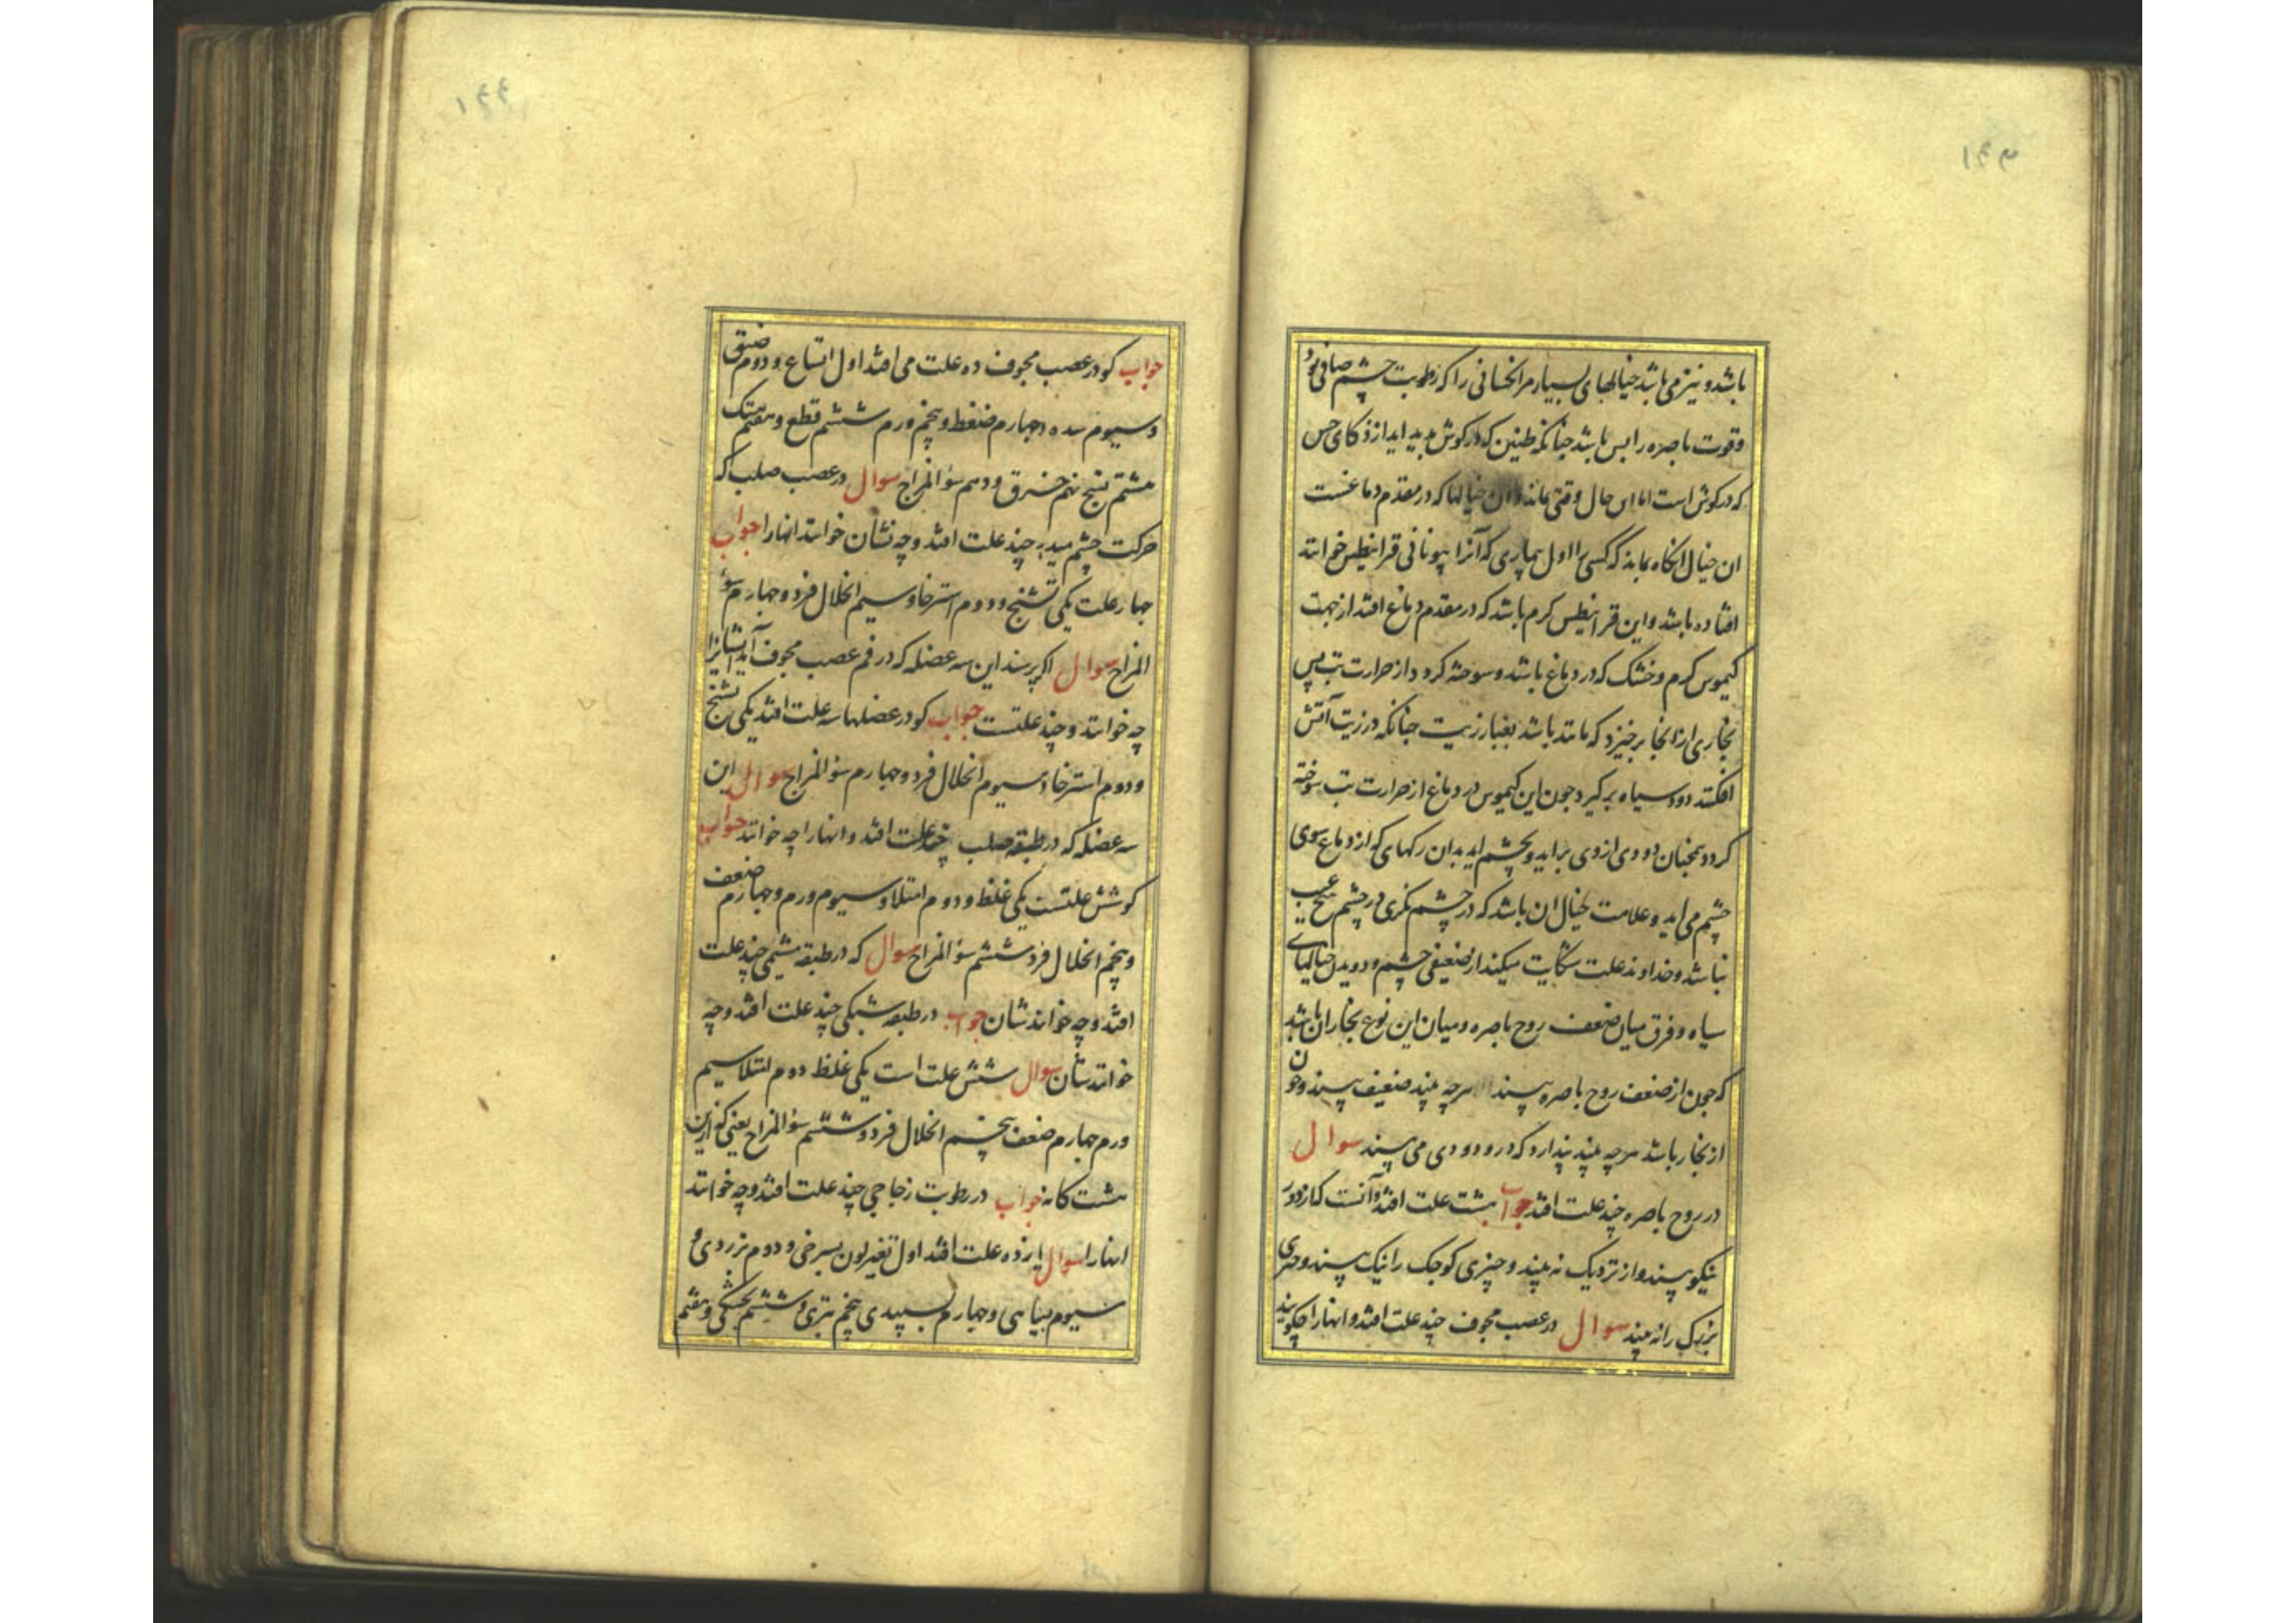 ۱۴۳
باشد و نیز می باشد خیالهای بسیار مر انکسانی را که رطوبت چشم صافی بود
وقوت باصره را بس باشد چنانکه طنین که در کوش پدید اید از ذکای حس
که در کوش است اما این حال وقتی باند وان خیالها که در مقدم دماغست
ان خیال انکاه بماند که کسی را اول بیماری که آنرا یونانی قرانیطس خوانند
افتاده باشد و این قرانیطس کرم باشد که در مقدم دماغ افتد از جهت
کیموس کرم و خشک که در دماغ باشد و سوخته کردد از حرارت تب پس
بخاری از انجا برخیزد که مانند باشد بغبار زیت چنانکه در زیت آتش
افکنند دود سیاه برکیرد چون این کیموس در دماغ از حرارت تب سوخته
کردد همچنان دودی از وی براید و بچشم اید بدان رکهای که از دماغ سوی
چشم می اید و علامت خیال ان باشد که در چشم نکری در چشم هیچ عیب
نباشد و خداوند علت شکایت میکند از ضعیفی چشم و دویدن خیالهای
سیاه و فرق میان ضعف روح باصره و میان این نوع بخار ان باشد
که چون از ضعف روح باصره بیند هرچه بیند ضعیف بیند و چون
از بخار باشد هرچه بیند پندارد که در دودی می بیند سوال
در روح باصره چند علت افتد جواب هشت علت افتد و آنست که از دور
نیکو بیند و از نزدیک نه بیند و چیزی کوچک را نیک بیند و چیزی
بزرک را نه بیند سوال در عصب مجوف چند علت افتد و انهارا چکویند
۱۴۴
جواب کو در عصب مجوف ده علت می افتد اول اتساع و دوم ضیق
و سیوم سده و چهارم ضغط و پنجم ورم ششم قطع و هفتم هتک
هشتم تشنج نهم خرق و دهم سؤ المزاج سوال در عصب صلب که
حرکت چشم میدهد چند علت افتد و چه نشان خوانند انهارا جواب
چهار علت یکی تشنج و دوم استرخا و سیم انحلال فرد و چهارم سؤ
المزاج سوال اکر پرسند این سه عضله که در فم عصب مجوف آید ایشانرا
چه خوانند و چند علتست جواب کو در عضلها سه علت افتد یکی تشنج
و دوم استرخا و سیوم انحلال فرد و چهارم سؤ المزاج سوال این
سه عضله که در طبقه صلب چند علت افتد و انهارا چه خوانند جواب
کو شش علتست یکی غلظ و دوم امتلا و سیوم ورم و چهارم ضعف
و پنجم انحلال فرد ششم سؤ المزاج سوال که در طبقه مشیمی چند علت
افتد و چه خوانند شان جواب در طبقه شبکی چند علت افتد و چه
خوانند شان سوال شش علت است یکی غلظ دوم امتلا سیم
ورم چهارم ضعف پنجم انحلال فرد و ششم سؤ المزاج یعنی کو ازین
هشت کانه جواب در رطوبت زجاجی چند علت افتد و چه خوانند
انهارا سوال یازده علت افتد اول تغیر لون بسرخی و دوم بزردی و
سیوم بسیاهی و چهارم بسپیدی پنجم بتری و ششم بخشکی و هفتم